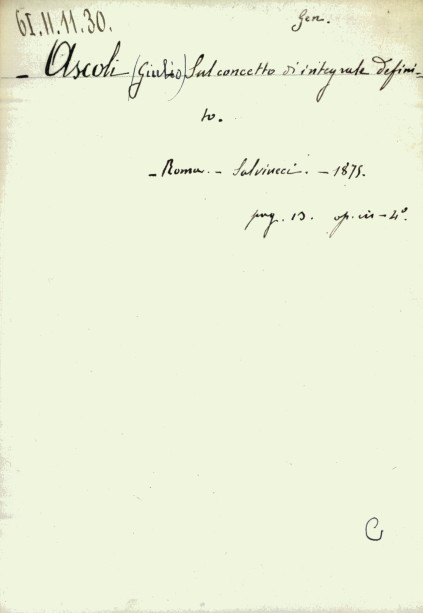 61.II.11.30.
Gen.
- Ascoli (Giulio) Sul concetto di integrale defini-
to.
- Roma. - Salviucci. - 1875.
pag. 13. op. in - 4º.
C